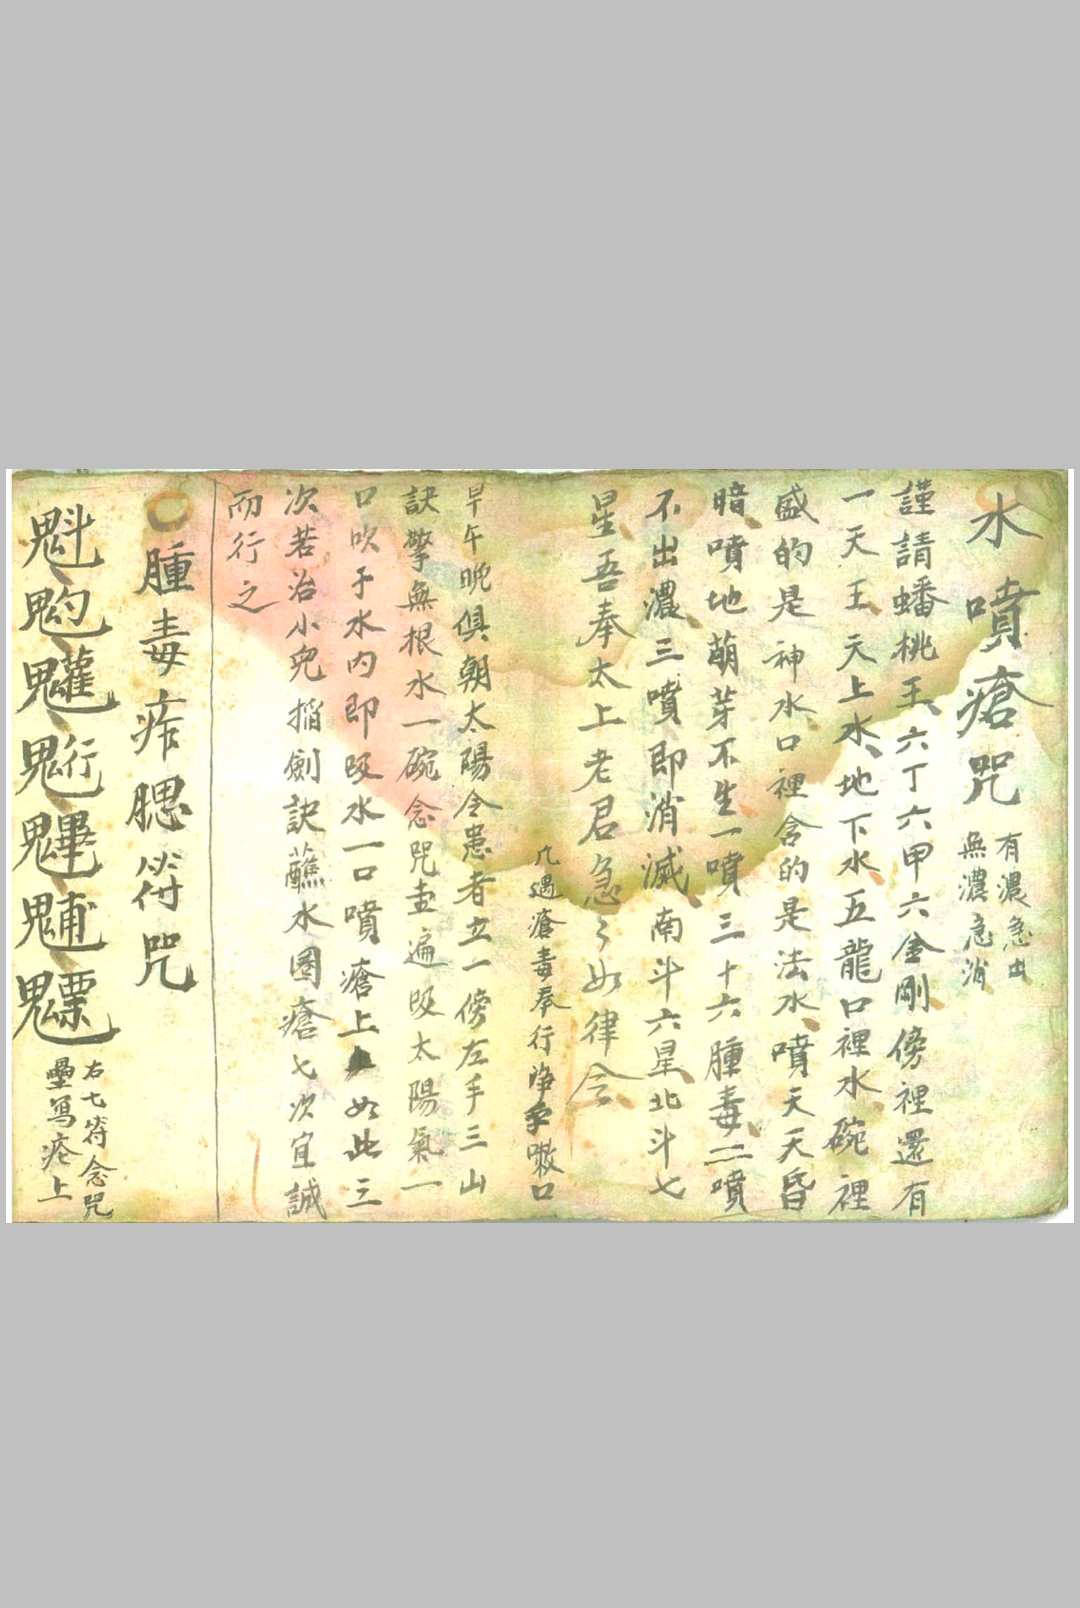 水噴瘡咒
有濃急出
無濃急消
謹請蟠桃王六丁六甲六金剛傍裡還有
一天王天上水地下水五龍口裡水碗裡
盛的是神水口裡含的是法水噴天天昏
暗噴地萌芽不生一噴三十六腫毒二噴
不出濃三噴即消滅南斗六星北斗七
星吾奉太上老君急々如律令
凡遇瘡毒奉行淨手嗽口
早午晚俱朝太陽令患者立一傍左手三山
訣擎無根水一碗念咒壹遍吸太陽氣一
口吹于水內即吸水一口噴瘡上如此三
次若治小兒掐劍訣蘸水圈瘡七次宜誠
而行之
腫毒痄腮符咒
魁魡䰠魼魓䰽魒
右七符念咒
壘寫瘡上